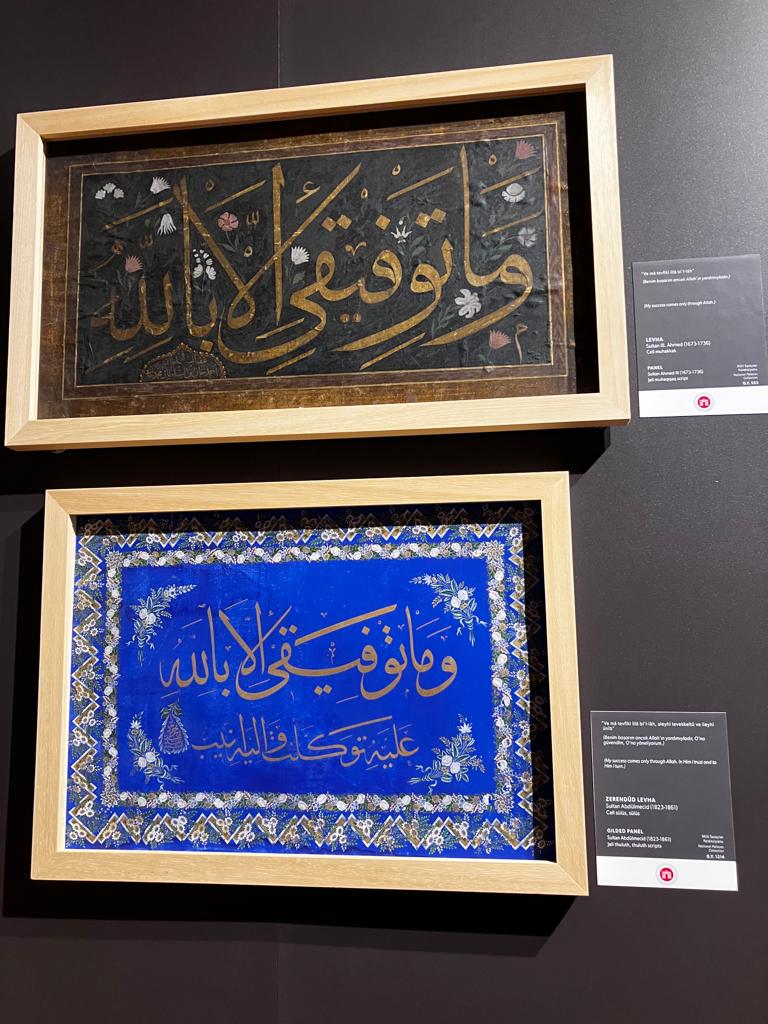 وما توفيقى الا بالله
"Ve mâ tevfîkî illâ bi'l-lâh"
(Benim başarım ancak Allah'ın yardımıyladır.)
(My success comes only through Allah.)
LEVHA
Sultan III. Ahmed (1673-1736)
Celî muhakkak
PANEL
Sultan Ahmed III (1673-1736)
Jeli muhaqqaq script
Milli Saraylar
Koleksiyonu
National Palaces
Collection
وما توفيقى الا بالله
عليه توكلت واليه انيب
"Ve mâ tevfîkî illâ bi'l-lâh, aleyhi tevekkeltü ve ileyhi
ünîb"
(Benim başarım ancak Allah'ın yardımıyladır, O'na
güvendim, O'na yöneliyorum.)
(My success comes only through Allah. In Him I trust and to
Him I turn.)
ZERENDÛD LEVHA
Sultan Abdülmecid (1823-1861)
Celî sülüs, sülüs
GILDED PANEL
Sultan Abdülmecid (1823-1861)
Jeli thuluth, thuluth scripts
Milli Saraylar
Koleksiyonu
National Palaces
Collection
G.Y. 1214